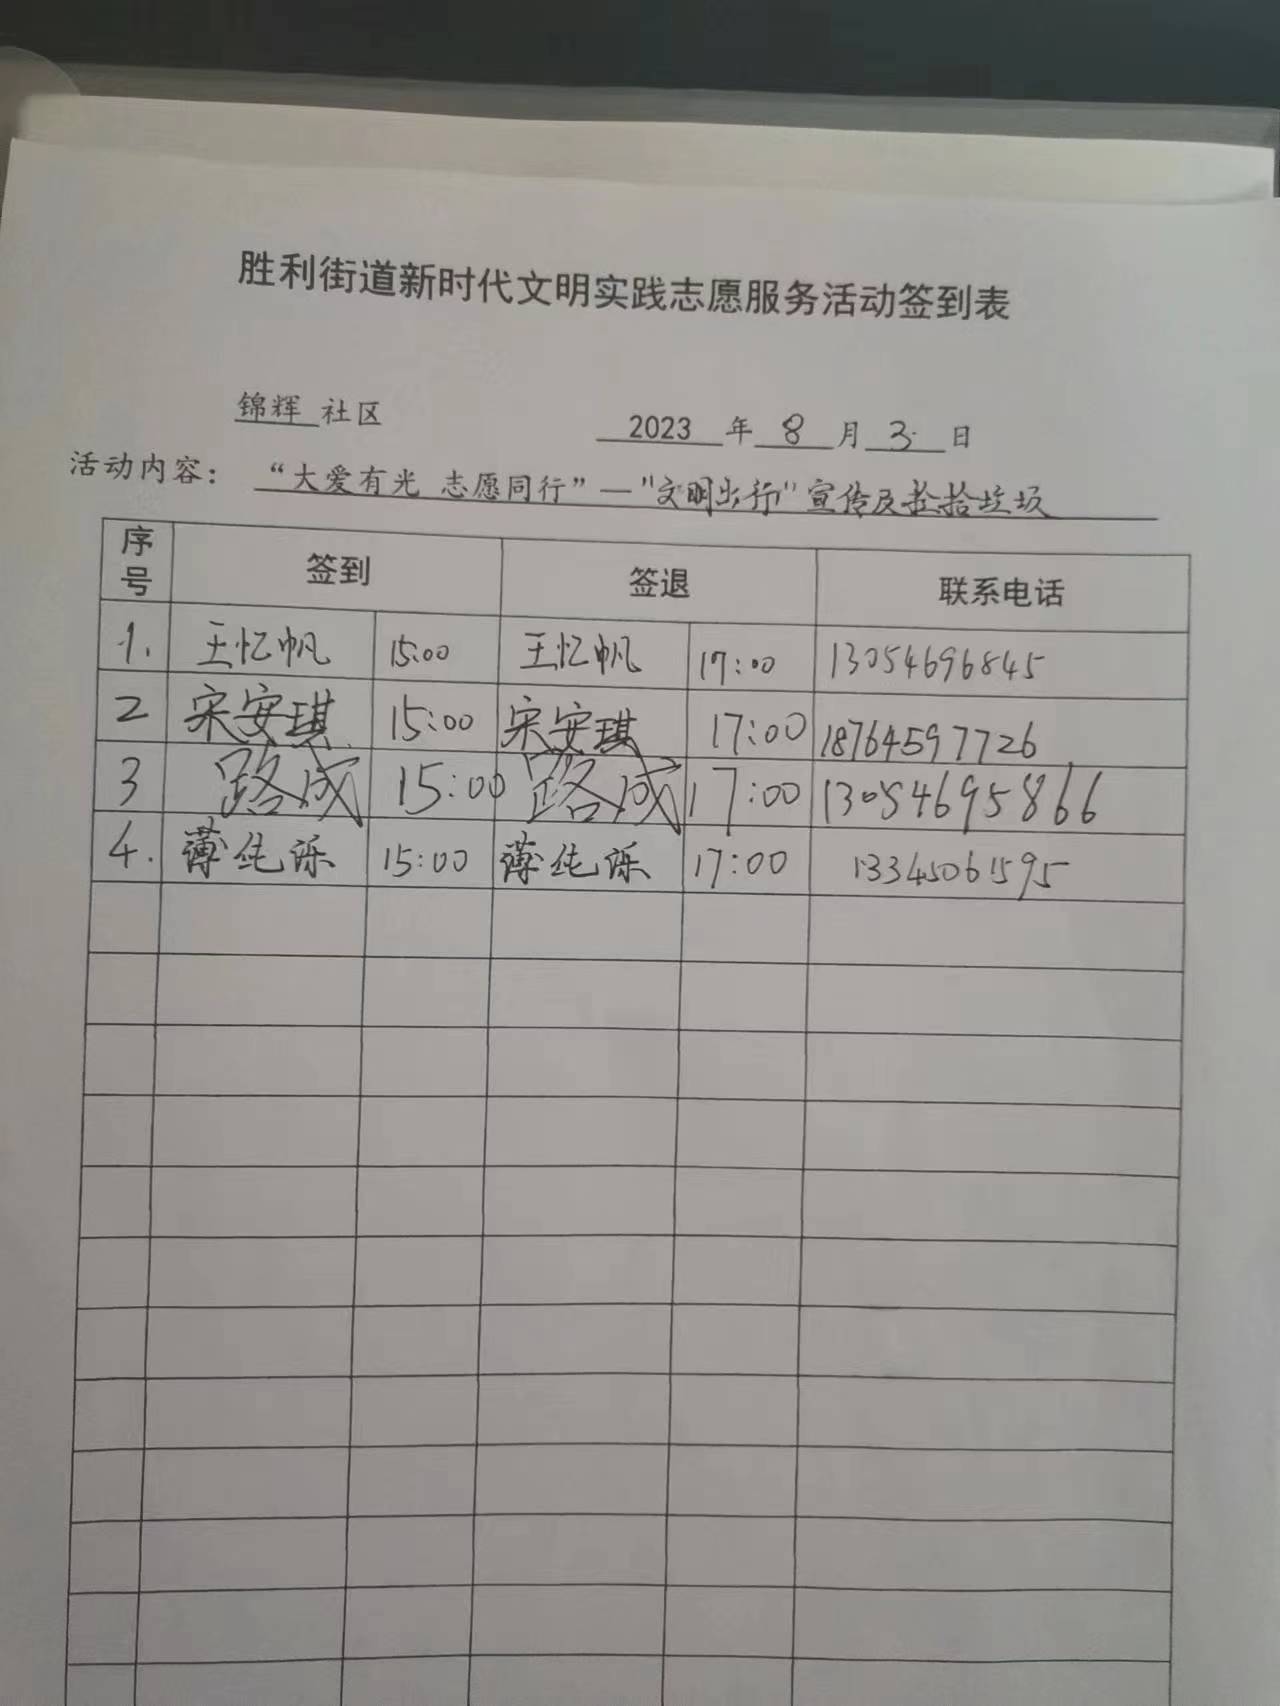 胜利街道新时代文明实践志愿服务活动签到表
锦辉 社区 2023 年 8 月 3 日
活动内容： “大爱有光 志愿同行”—“文明出行”宣传及捡拾垃圾
序号 签到 签退 联系电话
1. 王忆帆 15:00 王忆帆 17:00 13054696845
2 宋安琪 15:00 宋安琪 17:00 18764597726
3 路成 15:00 路成 17:00 13054695866
4. 薄纯泺 15:00 薄纯泺 17:00 13345061595